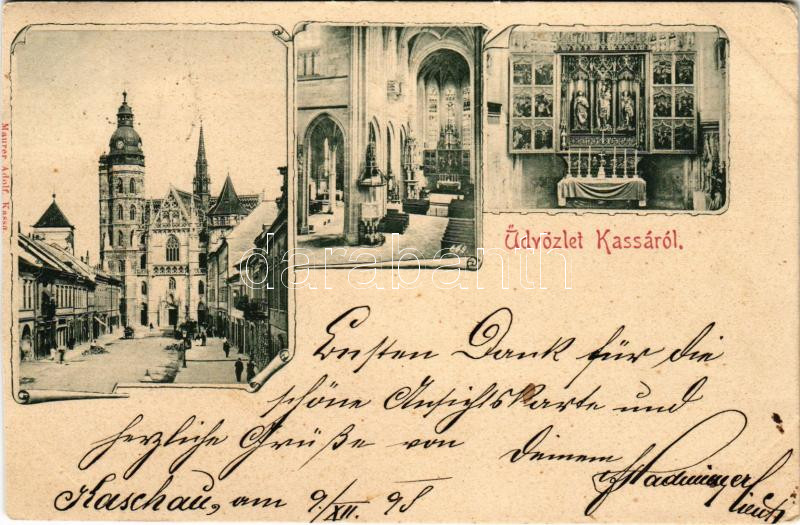 Maurer Adolf, Kassa.
Üdvözlet Kassáról.
darabanth
Besten Dank für die
schöne Ansichtskarte und
herzliche Grüße von deinem
Kaschau, am 9/XII. 98